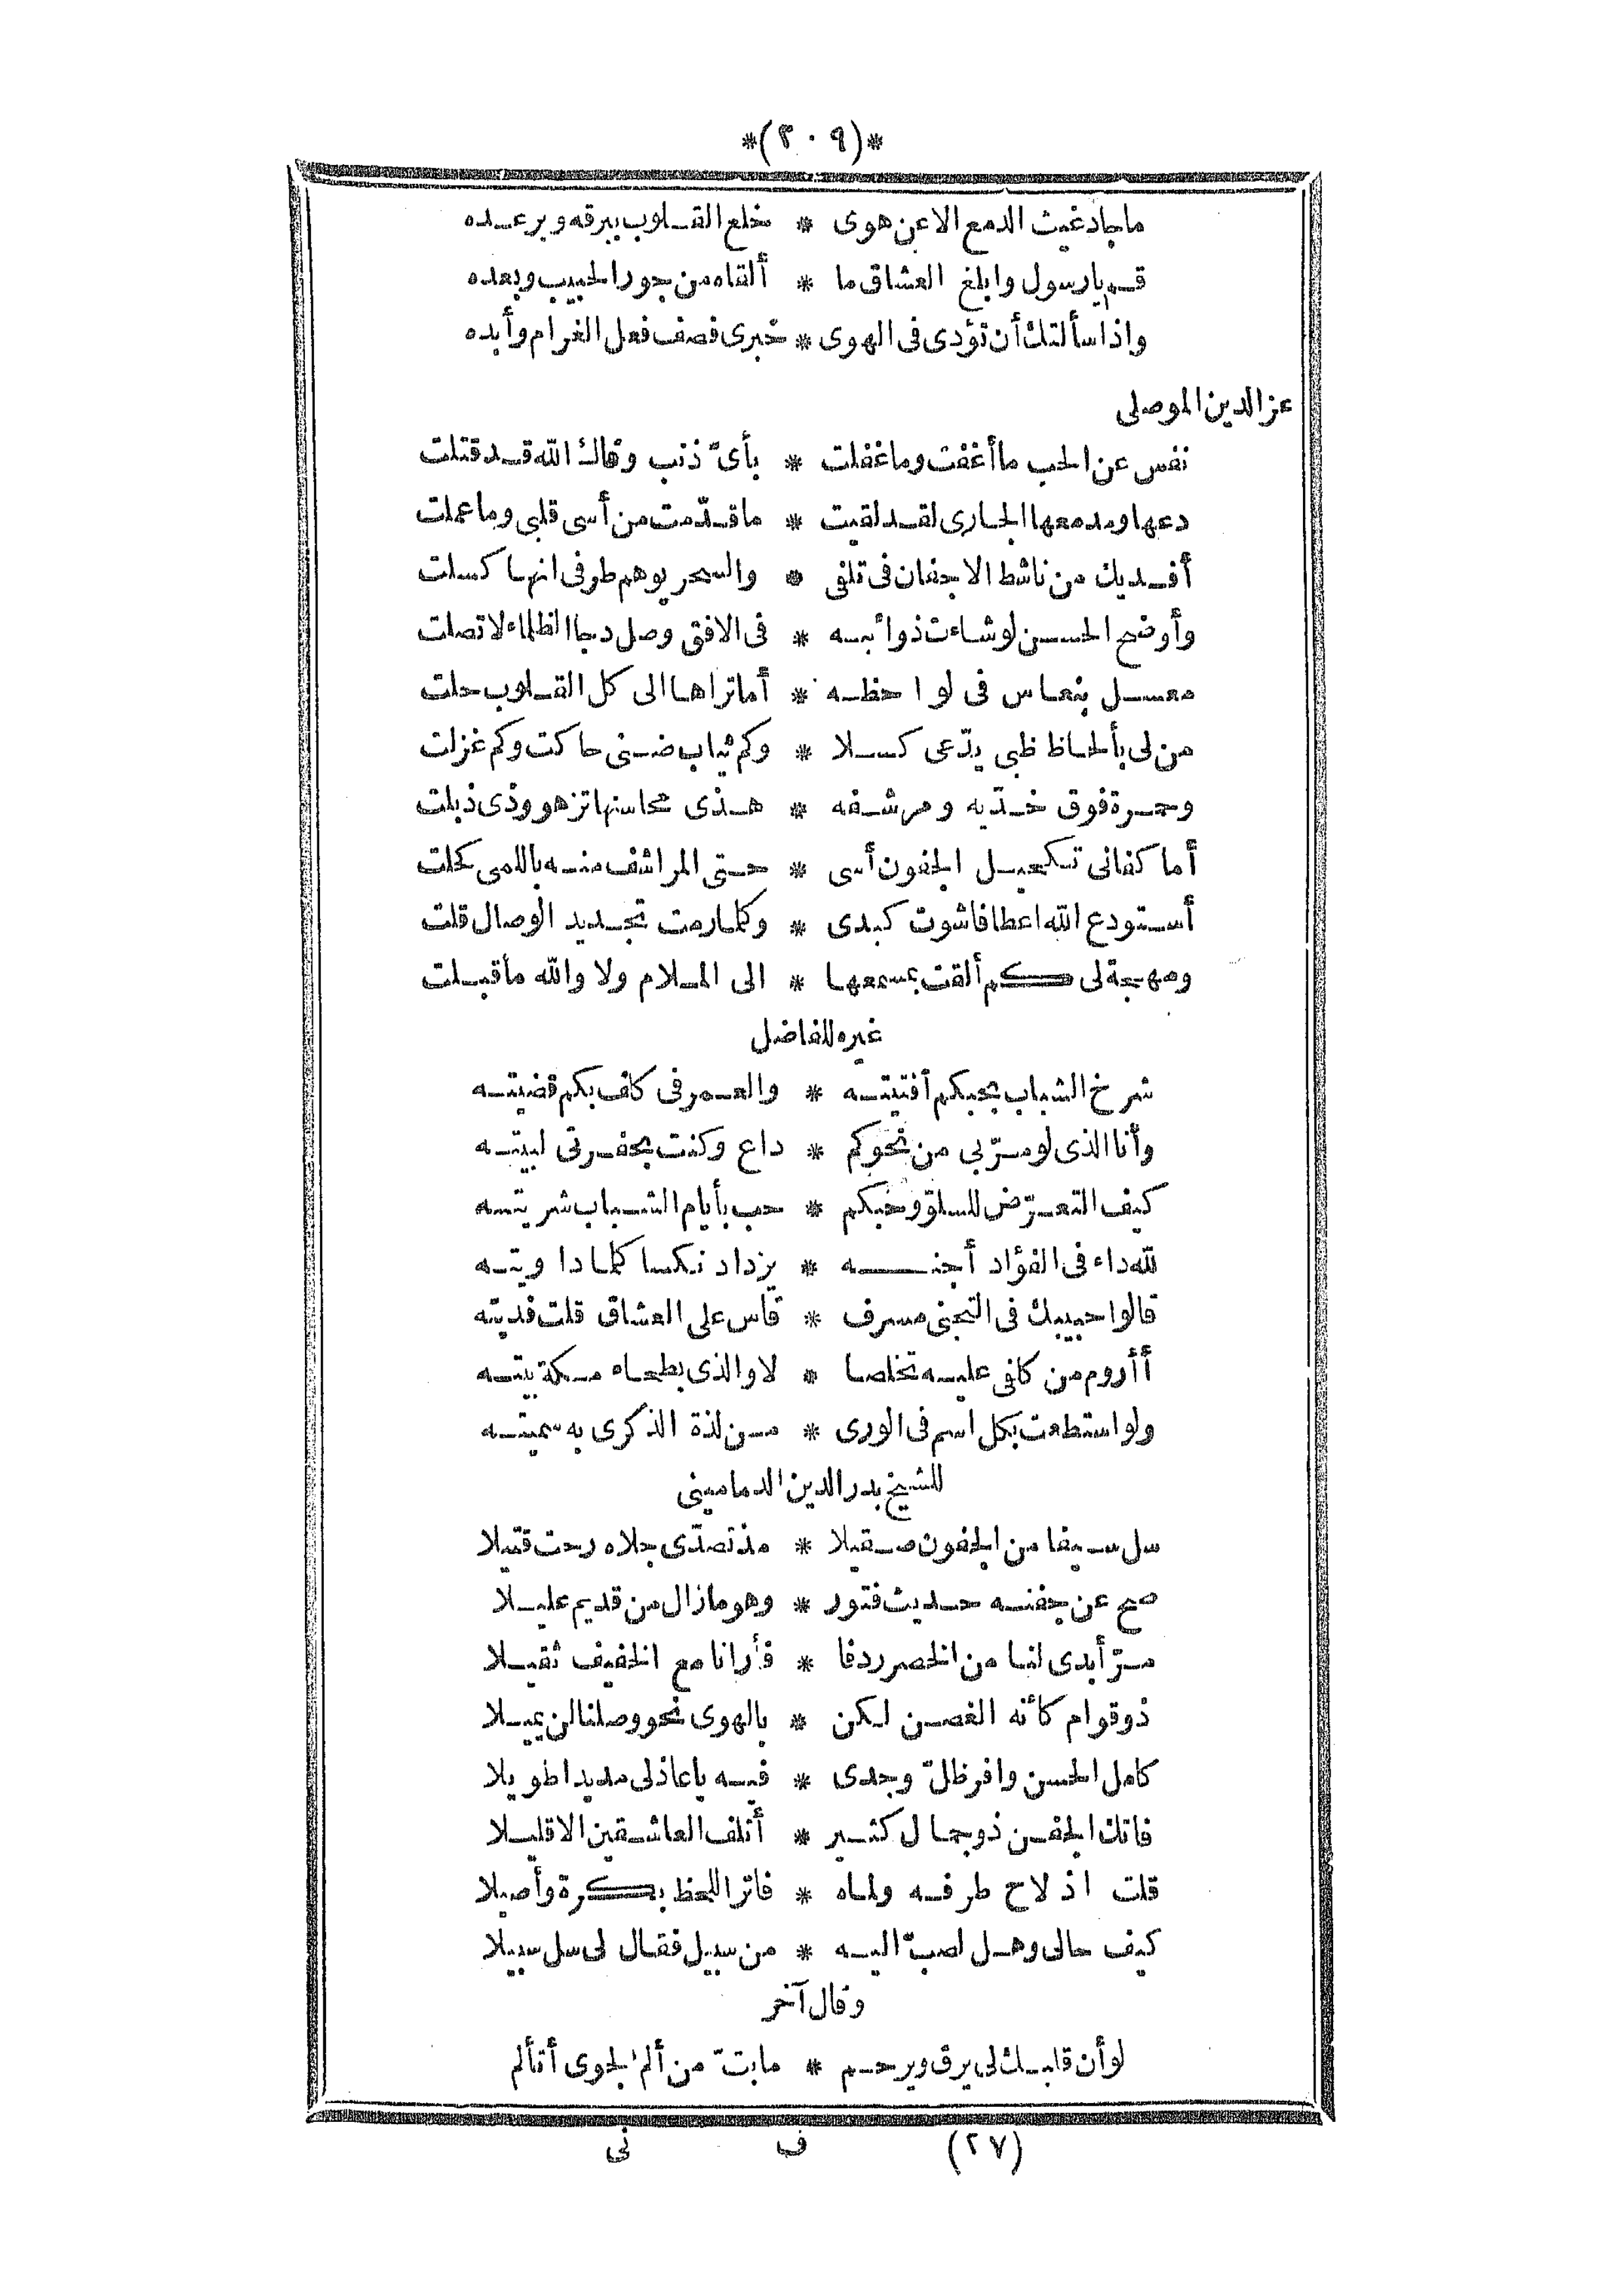 *(٢٠٩)*
ماجاد غيث الدمع الا عن هوى * خلع القلوب ببرقه وبرعده
قم يا رسول وابلغ العشاق ما * ألقاه من جور الحبيب وبعده
واذا سألتك أن تؤدى فى الهوى * خبرى فصف فعل الغرام وأبده
عز الدين الموصلى
نفس عن الحب ما أغفت وما غفلت * بأىّ ذنب وقاك الله قد قتلت
دعها ومدمعها الجارى لقد لقيت * ما قدّمت من أسى قلبى وما عملت
أفديك من ناشط الاجفان فى تلفى * والسحر يوهم طرفى انها كسلت
وأوضح الحسن لو شاءت ذوائبه * فى الافق وصل دجا الظلماء لاتصلت
معسل بنعاس فى لواحظه * أما تراها الى كل القلوب حلت
من لى بألحاظ ظبى يدّعى كسلا * وكم ثياب ضنى حاكت وكم غزلت
وحمرة فوق خدّيه ومرشفه * هذى محاسنها تزهو وذى ذبلت
أما كفانى تكحيل الجفون أسى * حتى المراشف منه باللمى كحلت
أستودع الله اعطافا شوت كبدى * وكلما رمت تجديد الوصال قلت
ومهجة لى كم ألقت بمسمعها * الى الملام ولا والله ما قبلت
غيره للفاضل
شرخ الشباب بحبكم أفنيته * والعمر فى كلف بكم قضيته
وأنا الذى لو مرّ بى من نحوكم * داع وكنت بحفرتى لبيته
كيف التعرّض للسلوّ وحبكم * حب بأيام الشباب شريته
لله داء فى الفؤاد أجنه * يزداد نكسا كلما داويته
قالوا حبيبك فى التجنى مسرف * قاس على العشاق قلت فديته
أأروم من كلفى عليه تخلصا * لا والذى بطحاء مكة بيته
ولو استطعت بكل اسم فى الورى * من لذة الذكرى به سميته
للشيخ بدر الدين الدمامينى
سل سيفا من الجفون صقيلا * مذ تصدّى جلاه رحت قتيلا
صح عن جفنه حديث فتور * وهو ما زال من قديم عليلا
مرّ أبدى لنا من الخصر ردفا * فأرانا مع الخفيف ثقيلا
ذو قوام كأنه الغصن لكن * بالهوى نحو وصلنا لن يميلا
كامل الحسن وافر ظلّ وجدى * فيه يا عاذلى مديدا طويلا
فاتك الجفن ذو جمال كثير * أتلف العاشقين الا قليلا
قلت اذ لاح طرفه ولماه * فاتر اللحظ بكرة وأصيلا
كيف حالى وهل لصبّ اليه * من سبيل فقال لى سل سبيلا
وقال آخر
لو أن قلبك لى يرق ويرحم * ما بتّ من ألم الجوى أتألم
(٢٧) ف نى